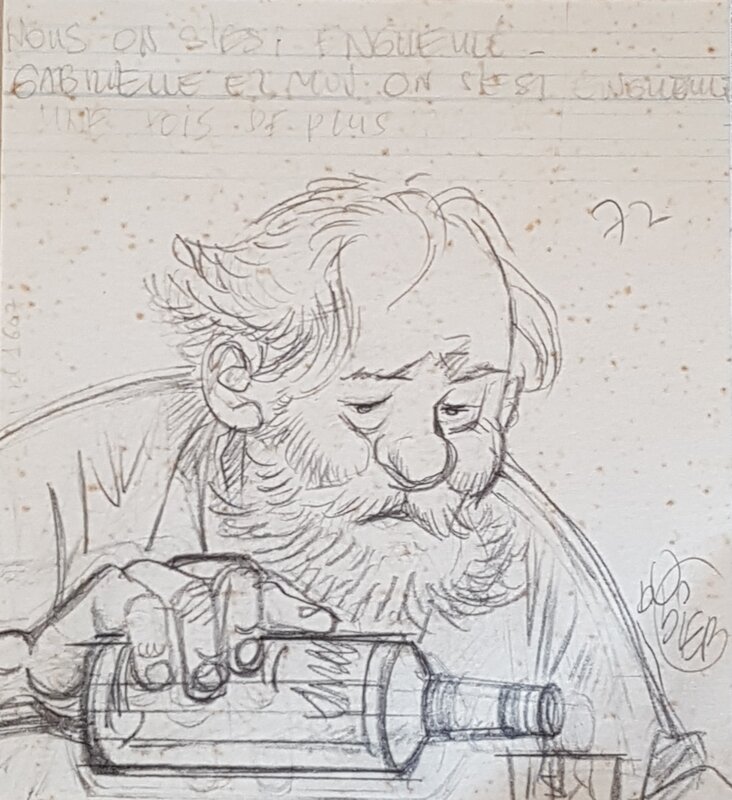 NOUS ON S'EST ENGUEULÉ -
GABRIELLE ET MOI ON S'EST ENGUEULÉ
UNE FOIS DE PLUS
72